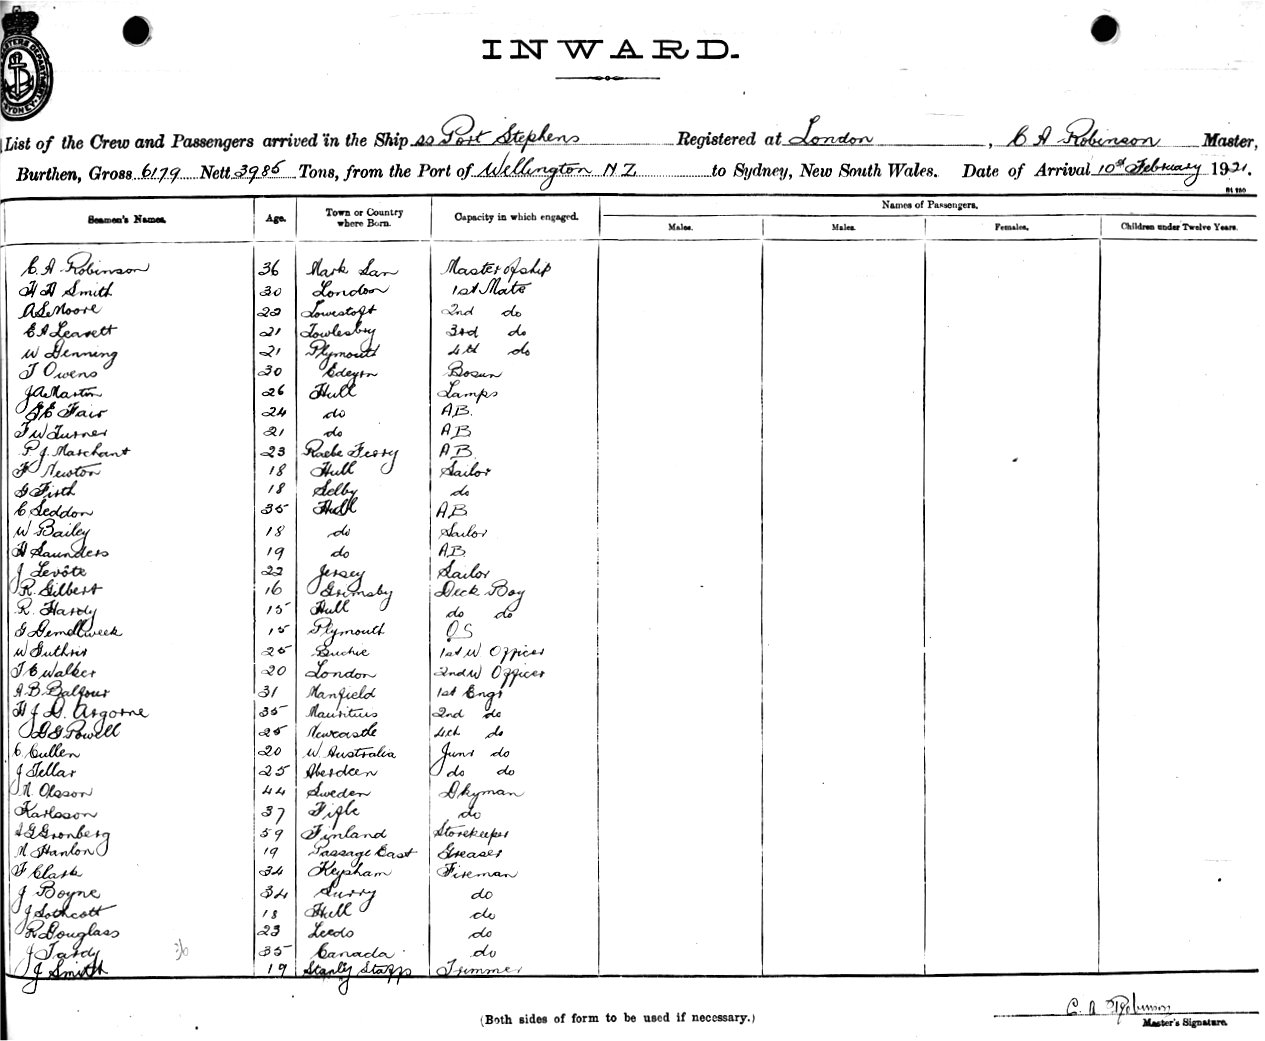 INWARD.
List of the Crew and Passengers arrived in the Ship ss Port Stephens Registered at London, C A Robinson Master,
Burthen, Gross 6179 Nett 3985 Tons, from the Port of Wellington N Z to Sydney, New South Wales. Date of Arrival 10th February 1921.
Seamen's Names. Age. Town or Country where Born. Capacity in which engaged. Names of Passengers.
Males. Males. Females. Children under Twelve Years.
C. A. Robinson 36 Mark Master of ship
H A Smith 30 London 1st Mate
A L Moore Lowestoft 2nd do
C A Leavett 21 3rd do
W Genning 21 Plymouth 4th do
T Owens 30 Edeyrn Bosun
J A Martin 26 Hull Lamps
G E Fair 24 do A.B.
F W Turner 21 do A B
P. J. Marchant 23 Ferry A B
F Newton 18 Hull Sailor
G Firth 18 Selby do
C Seddon 35 Hull A B
W Bailey 18 do Sailor
H Saunders 19 do A.B.
J Levôte 22 Jersey Sailor
R. Gilbert 16 Grimsby Deck Boy
R. Hardy 15 Hull do do
G 15 Plymouth O S
W Guthrie 25 Buckie 1st W Officer
T C Walker 20 London 2nd W Officer
A. B. Balfour 31 Manfield 1st Engr
H J G. Argorne 35 Mauritius 2nd do
G G Powell 25 Newcastle 4th do
C. Cullen 20 W Australia Junr do
J Tellar 25 Aberdeen do do
N. Olsson 44 Sweden Dkyman
Karlsson 37 do
Gronberg 59 Finland Storekeeper
N Hanlon 19 Passage East Greaser
F Clark 34 Keysham Fireman
J Boyne 34 Surry do
J Sothcott 18 Hull do
R Douglass 23 Leeds do
J Tardy 35 Canada do
J Smith 19 Trimmer
(Both sides of form to be used if necessary.)
C. A Robinson
Master's Signature.